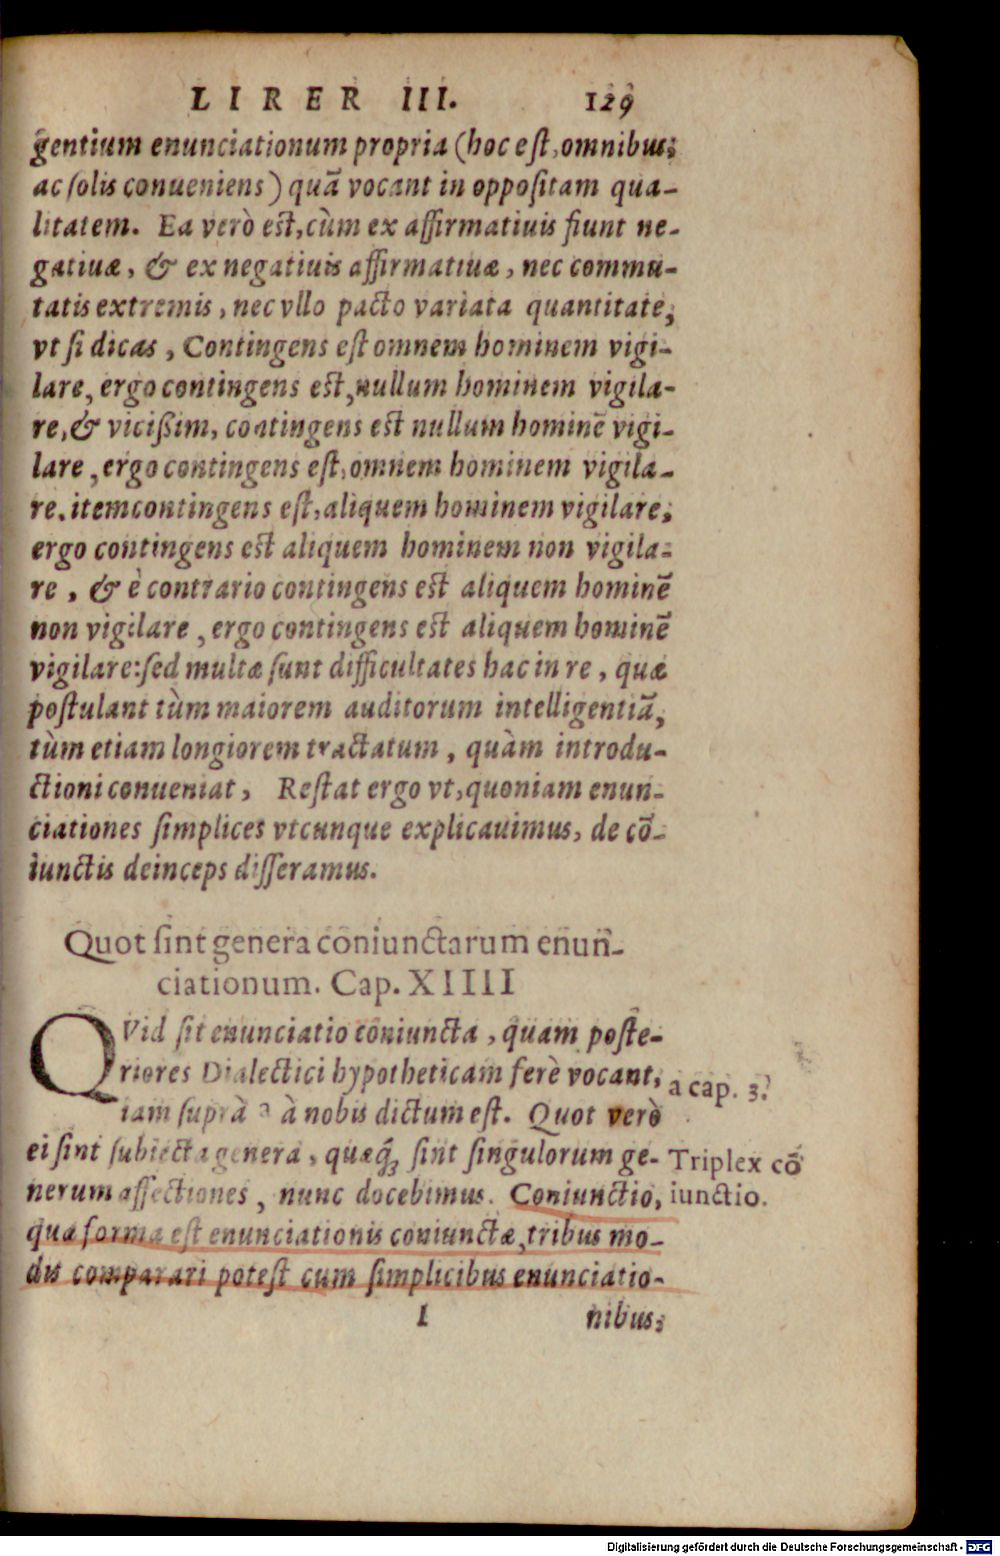 LIRER III. 129
gentium enunciationum propria (hoc eſt, omnibus,
ac ſolis conueniens) quā vocant in oppoſitam qua-
litatem. Ea verò eſt, cùm ex affirmatiuis fiunt ne-
gatiuæ, & ex negatiuis affirmatiuæ, nec commu-
tatis extremis, nec vllo pacto variata quantitate,
vt ſi dicas, Contingens eſt omnem hominem vigi-
lare, ergo contingens eſt, nullum hominem vigila-
re, & viciſsim, contingens eſt nullum hominē vigi-
lare, ergo contingens eſt, omnem hominem vigila-
re. item contingens eſt, aliquem hominem vigilare,
ergo contingens eſt aliquem hominem non vigila-
re, & è contrario contingens eſt aliquem hominē
non vigilare, ergo contingens eſt aliquem hominē
vigilare: ſed multæ ſunt difficultates hac in re, quæ
poſtulant tùm maiorem auditorum intelligentiā,
tùm etiam longiorem tractatum, quàm introdu-
ctioni conueniat, Reſtat ergo vt, quoniam enun-
ciationes ſimplices vtcunque explicauimus, de cō-
iunctis deinceps diſſeramus.
Quot ſint genera coniunctarum enun-
ciationum. Cap. XIIII
QVid ſit enunciatio coniuncta, quam poſte-
riores Dialectici hypotheticam ferè vocant,
a cap. 3.
iam ſuprà a à nobis dictum eſt. Quot verò
ei ſint ſubiecta genera, quæq; ſint ſingulorum ge-
Triplex cō
nerum affectiones, nunc docebimus. Coniunctio,
iunctio.
quæ forma eſt enunciationis coniunctæ, tribus mo-
dis comparari poteſt cum ſimplicibus enunciatio-
I nibus,
Digitalisierung gefördert durch die Deutsche Forschungsgemeinschaft - DFG